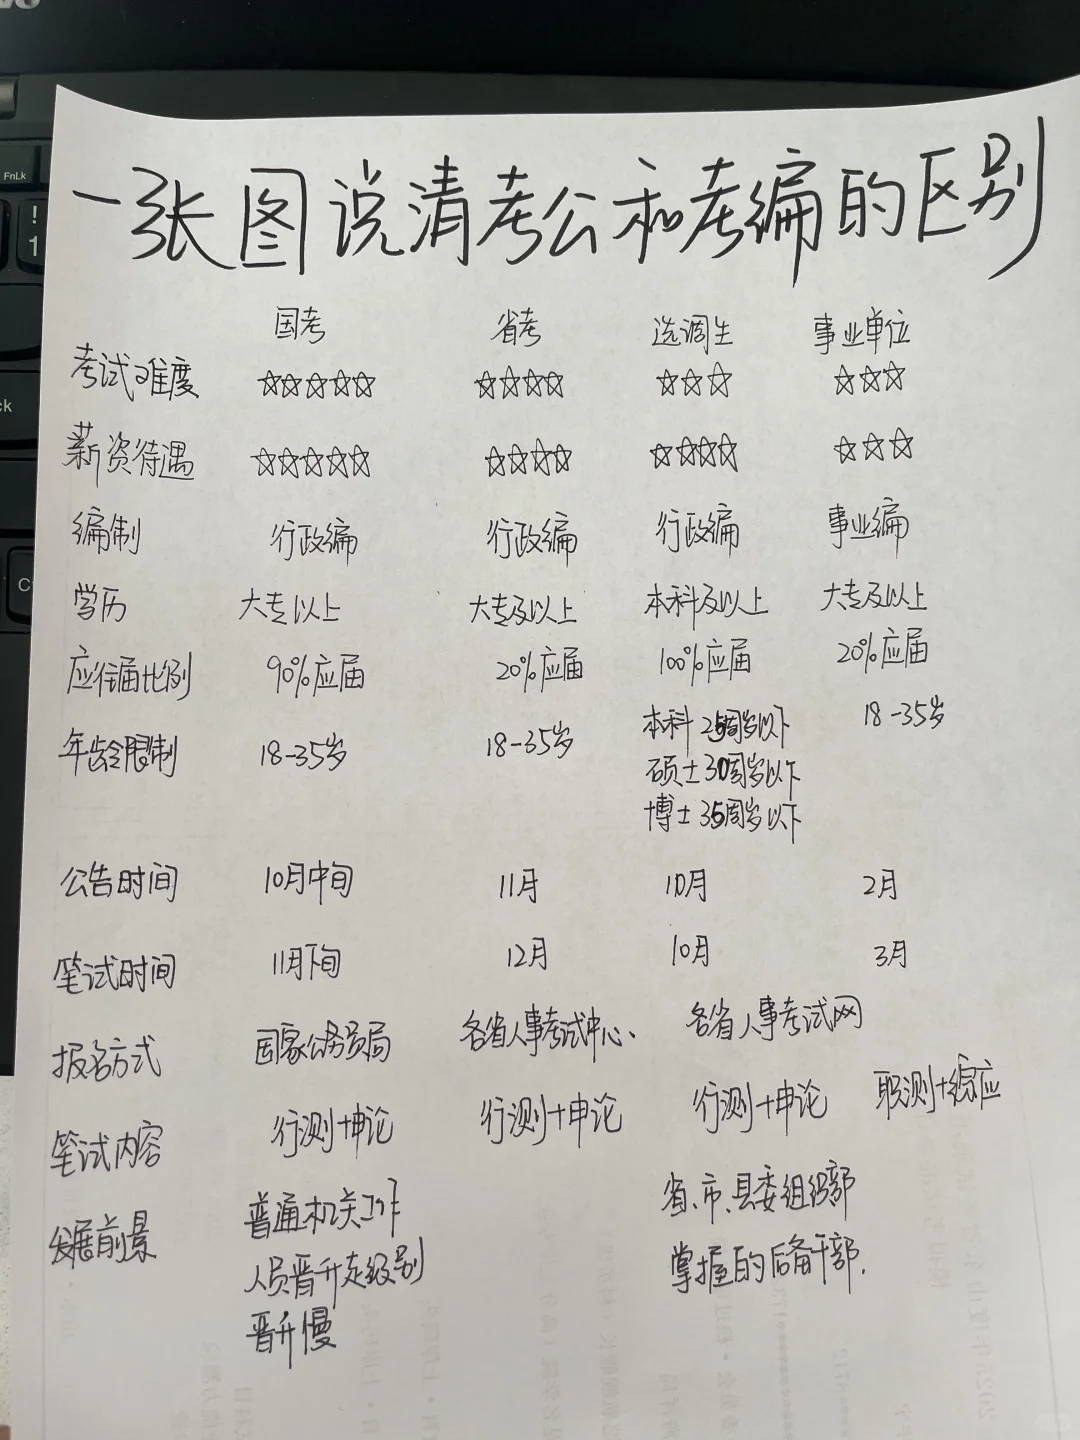 一张图说清考公和考编的区别
国考 省考 选调生 事业单位
考试难度 ☆☆☆☆☆ ☆☆☆☆ ☆☆☆ ☆☆☆
薪资待遇 ☆☆☆☆☆ ☆☆☆☆ ☆☆☆☆ ☆☆☆
编制 行政编 行政编 行政编 事业编
学历 大专以上 大专及以上 本科及以上 大专及以上
应往届比例 90%应届 20%应届 100%应届 20%应届
年龄限制 18-35岁 18-35岁 本科25周岁以下 18-35岁
硕士30周岁以下
博士35周岁以下
公告时间 10月中旬 11月 10月 2月
笔试时间 11月下旬 12月 10月 3月
报名方式 国家公务员局 各省人事考试中心、 各省人事考试网
笔试内容 行测+申论 行测+申论 行测+申论 职测+综应
发展前景 普通机关工作 省、市、县委组织部
人员晋升走级别 掌握的后备干部.
晋升慢
FnLk
!
1